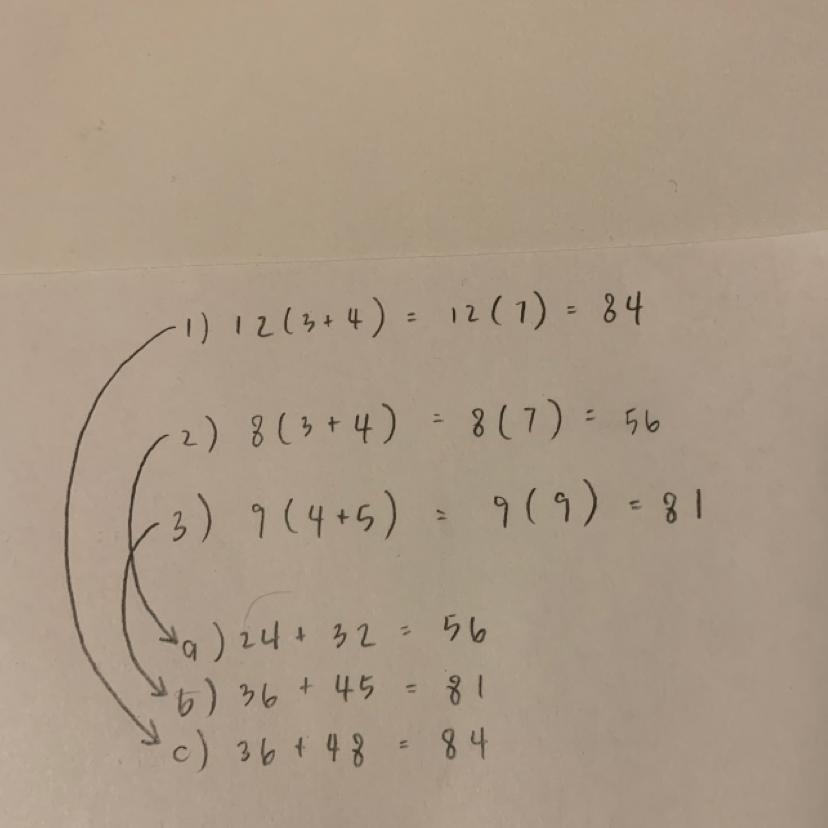 1) 12(3+4) = 12(7) = 84
2) 8(3+4) = 8(7) = 56
3) 9(4+5) = 9(9) = 81
a) 24 + 32 = 56
b) 36 + 45 = 81
c) 36 + 48 = 84